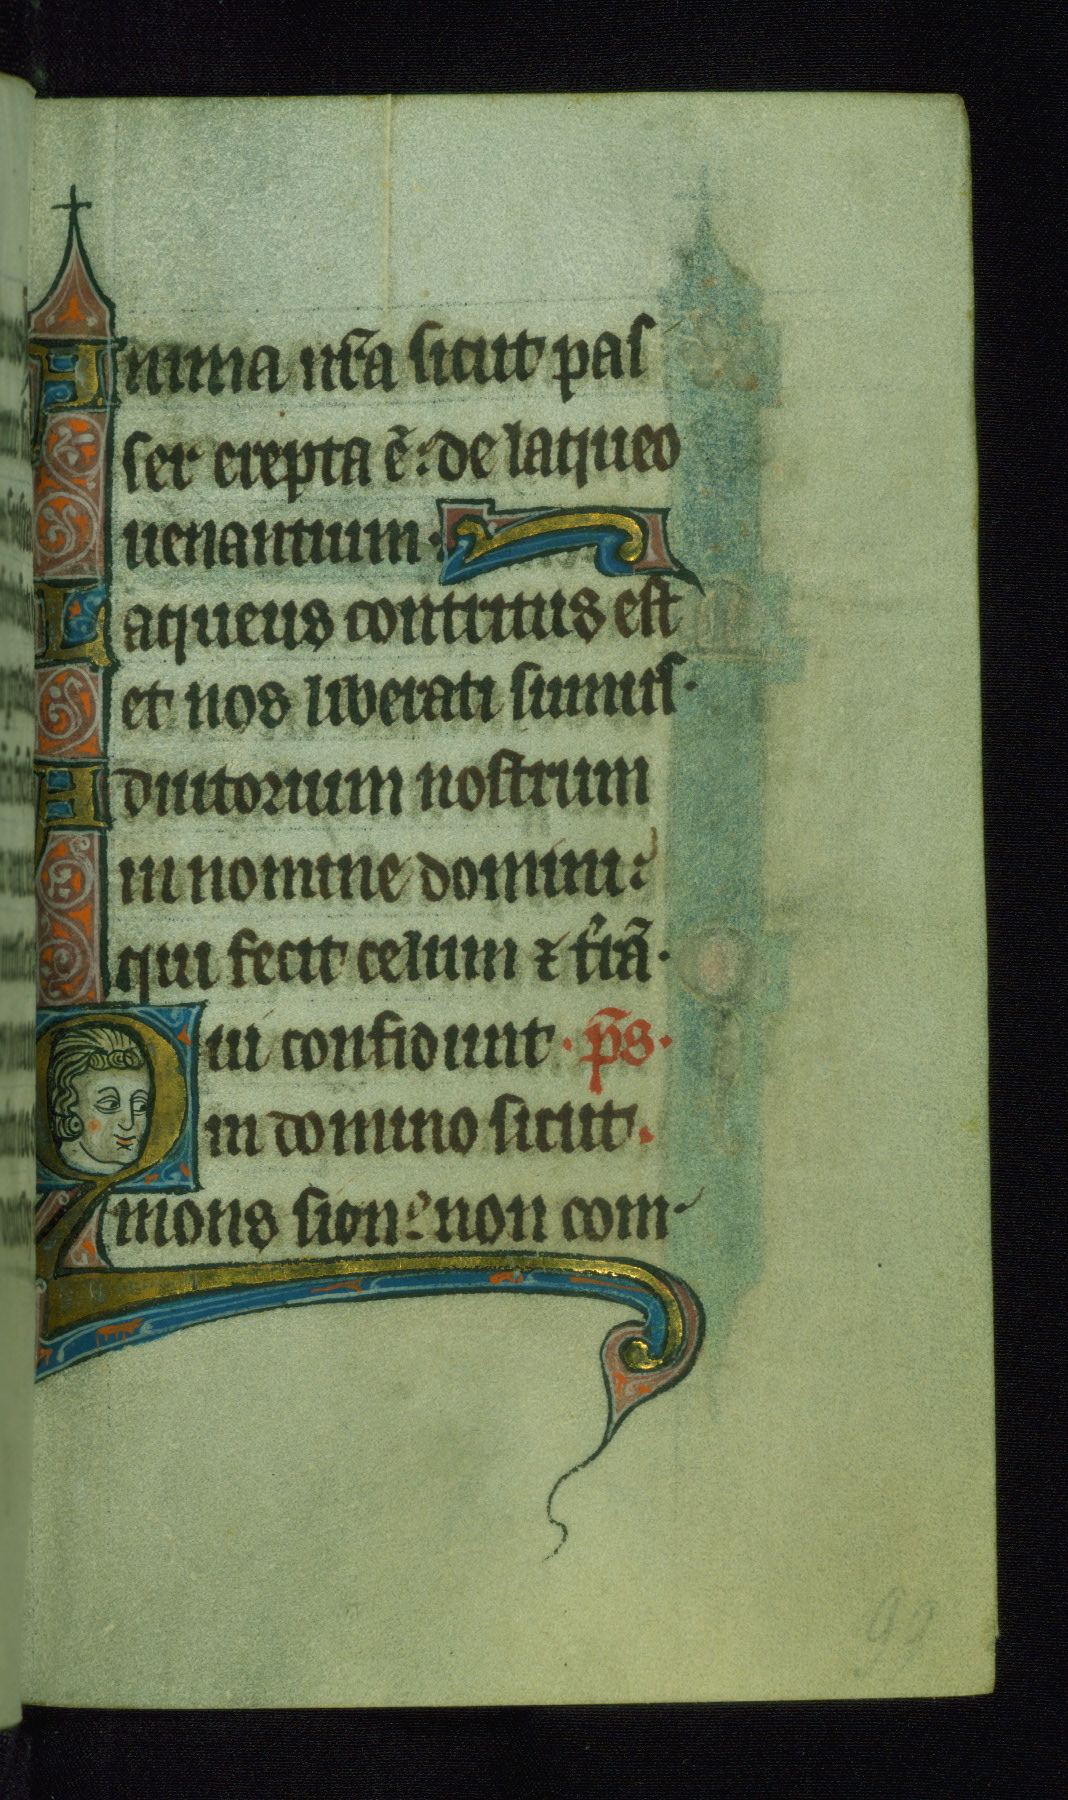 Anima nr̃a sicut pas
ser erepta ẽ: de laqueo
uenantium·
Laqueus contritus est
et nos liberati sumus·
Adiutorium nostrum
in nomine domini:
qui fecit celum ⁊ tr̃iã·
Qui confidunt · p̃s·
in domino sicut·
mons sion: non com-
99